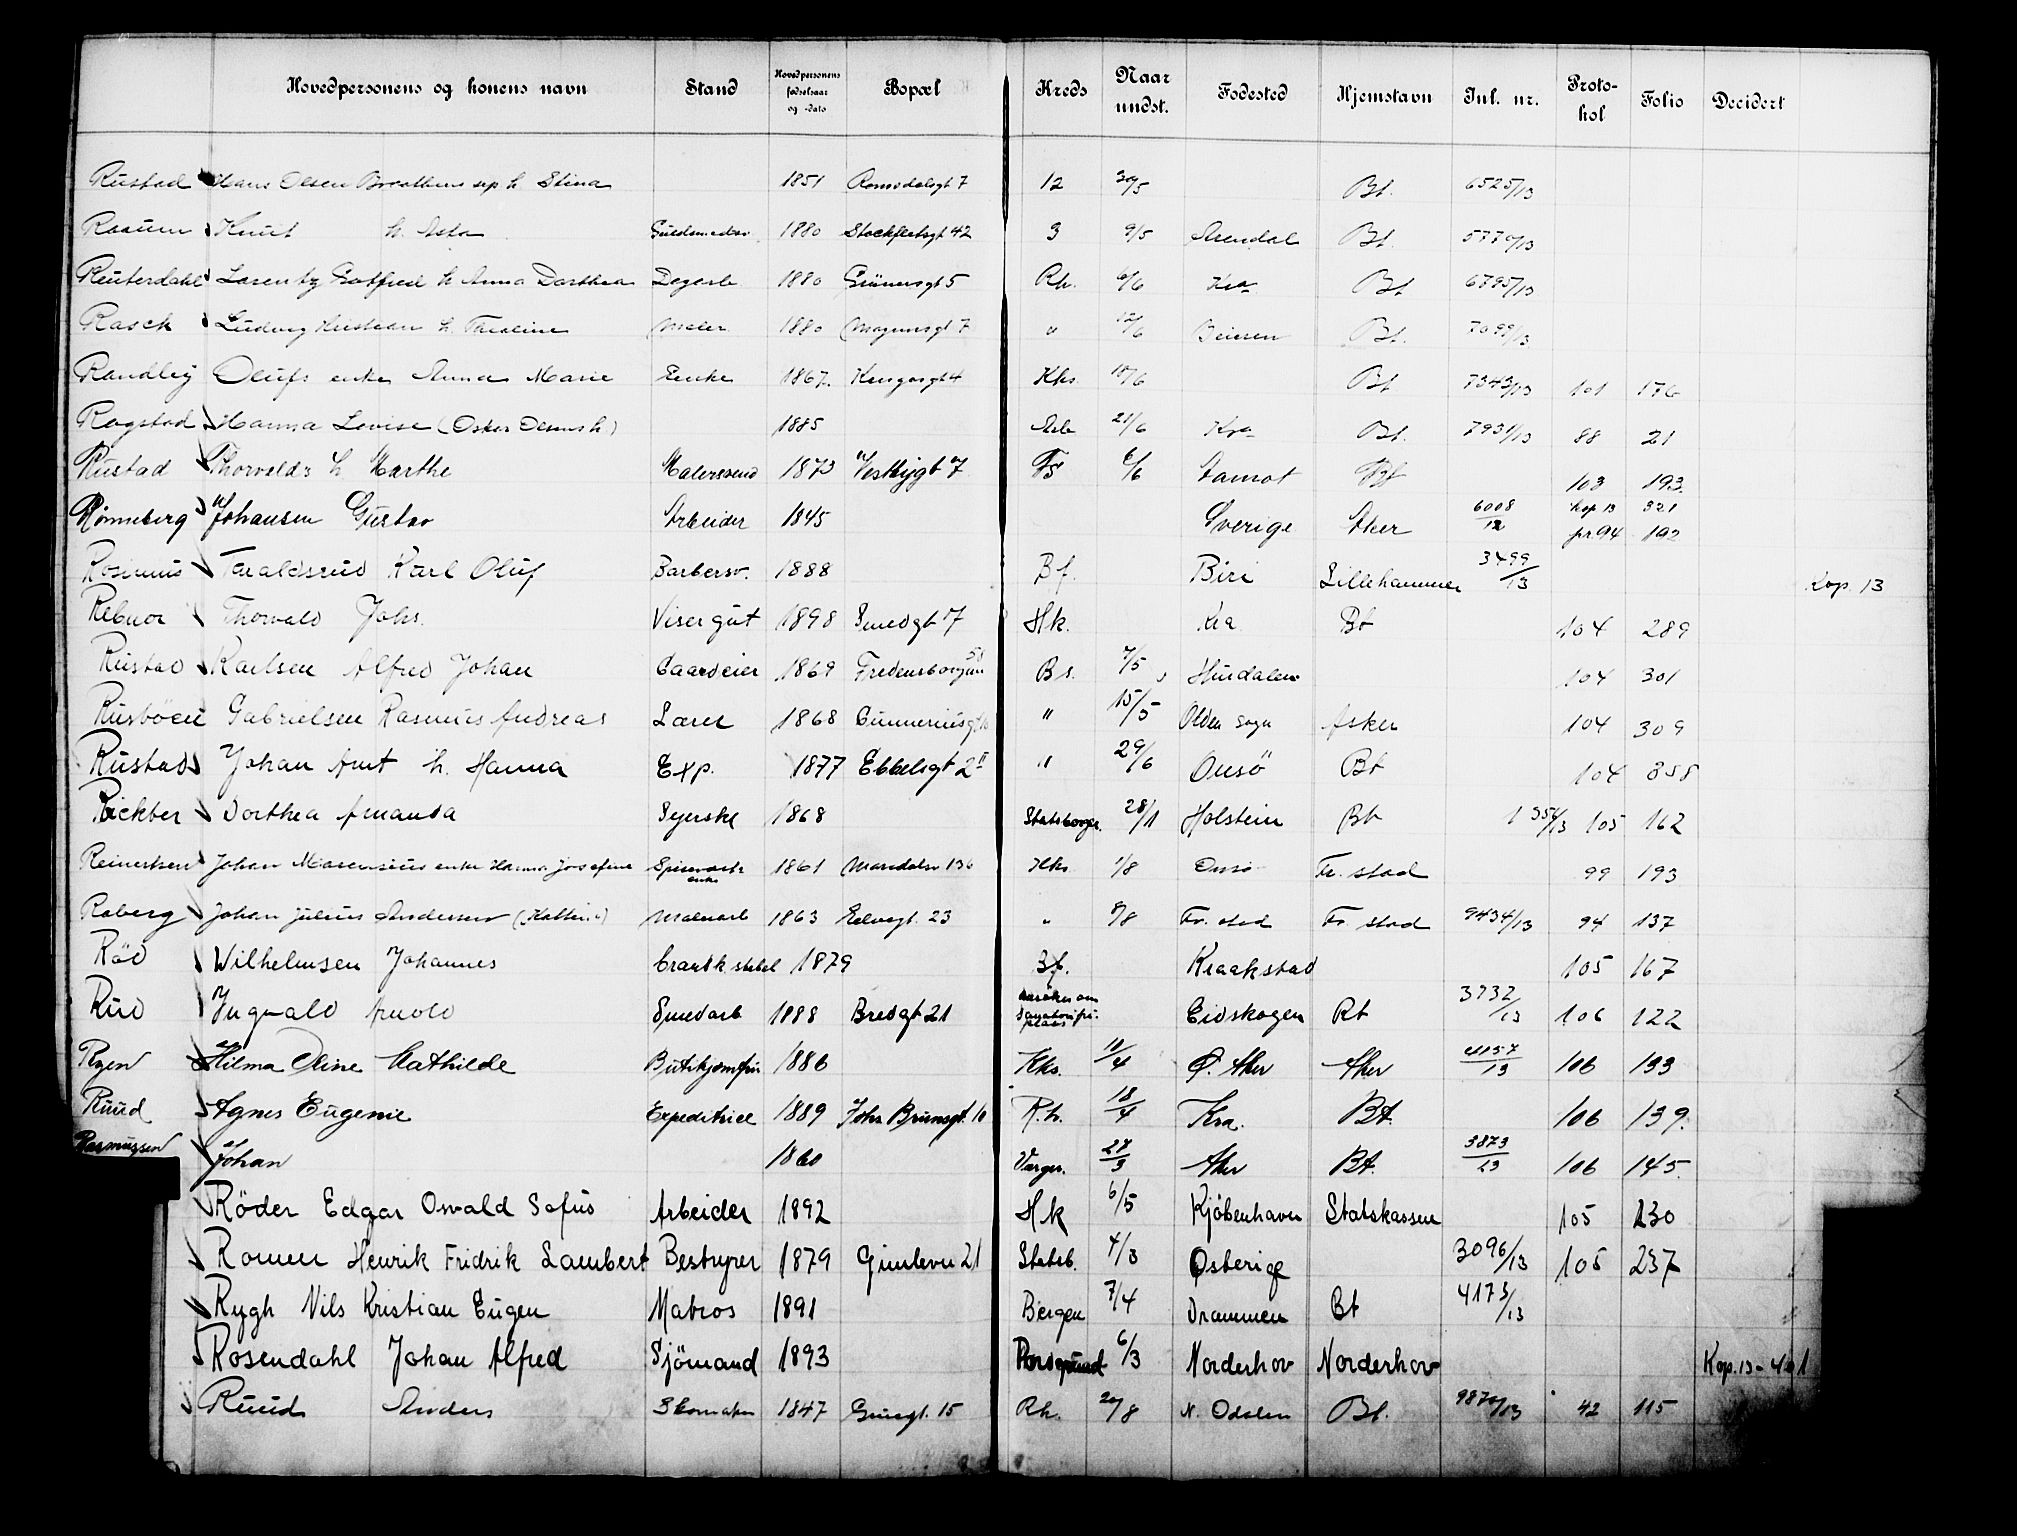 Hovedpersonens og konens navn Stand Hovedpersonens fødselsaar og -dato Bopæl Kreds Naar undst. Fødested Hjemstavn Inl. nr. Protokol Folio Decidert
Rustad Hans Olsen Braathens sep h Stina 1851 Romsdalsgt 7 12 30/5 Bt. 6525/13
Raaum Knut h. Asta Guldsmedsv. 1880 Stockfletsgt 42 3 9/5 Arendal Bt. 5770/13
Reuterdahl Lorentz Gotfred h Anna Dorthea Dagarb 1880 Grünersgt 5 Rh. 6/6 Kra Bt 6795/13
Rasch Ludvig Kristian h. Maler 1880 Magnusgt 7 " 12/6 Beieren Bt. 7099/13
Randley Olufs enke Anna Marie Enke 1867. Kingosgt 4 Kks 18/6 Bt 7343/13 101 176
Rogstad Hanna Lovise (Oskar Olsens h.) 1885 Arb 21/6 Kra Bt. 7931/13 88 21
Rustad Thorvalds h Marthe Malersvend 1873 Vestbygt 7 6/6 Aamot Bt 103 193.
Rønneberg Johansen Gustav Arbeider 1845 Sverige Aker 6008/12 kop 13 321
pr. 94 192
Rosenius Taraldsrud Karl Oluf Barbersv. 1888 Bf. Biri Lillehammer 3499/13 Kop. 13
Rebnor Thorvald Johs. Visergut 1898 Smedgt 7 Hk. Kra Bt 104 289
Rustad Karlsen Alfred Johan Gaardeier 1869 Fredensborgvn 58 Bs. 7/5 Hurdalen 104 301
Rusbøen Gabrielsen Rasmus Andreas Lærer 1868 Gunneriusgt " 15/5 Olden sogn Asker 104 309
Rustad Johan Amt h. Hanna Exp. 1877 Ebbelsgt 2 II " 29/6 Onsö Bt 104 358
Rickter Dorthea Amanda Syerske 1868 Statsborger. 28/1 Holstein Bt 1354/13 105 162
Reinertsen Johan Marensius enke Hanna Josefine Spisevært enke 1861 Maridalsv 136 Kks 1/8 Onsö Fr. stad 99 193
Roberg Johan Julius Andersen (Kathin.) Malerarb 1863 Eilertgt. 23 " 8/8 Fr. stad Fr. stad 9434/13 94 137
Röd Wilhelmsen Johannes 1879 Bf. Kraakstad 105 167
Rud Ingvald Arnold Smedarb 1888 Bredgt 21 Ansøker om Sanatorieplads Eidskogen Bt 3732/13 106 122
Ryen Hilma Oline Mathilde Butikjomfru 1886 Kks. 11/4 Ø. Aker Aker 4157/13 106 133
Ruud Agnes Eugenie Expeditrice 1889 Johs Brunsgt. 10 R.h. 18/4 Kra. Bt. 106 139.
Rasmussen Johan 1860 Varger. 27/3 Aker Bt. 3873/13 106 145.
Röder Edgar Osvald Sofus Arbeider 1892 Hk 6/5 Kjöbenhavn Statskassen 105 230
Romen Henrik Fridrik Lambert Bestyrer 1879 Gimlevn 21 Statsb. 4/3 Østerige 3096/13 105 237
Rygh Nils Kristian Eugen Matros 1891 Bergen 7/4 Drammen Bt 4173/13
Rosendahl Johan Alfred Sjömand 1893 Porsgrund 6/3 Norderhov Norderhov Kop. 13 - 401
Ruud Anders Skomaker 1847 Grüsgt. 15 Rh. 20/8 N. Odalen Bt. 9870/13 42 115